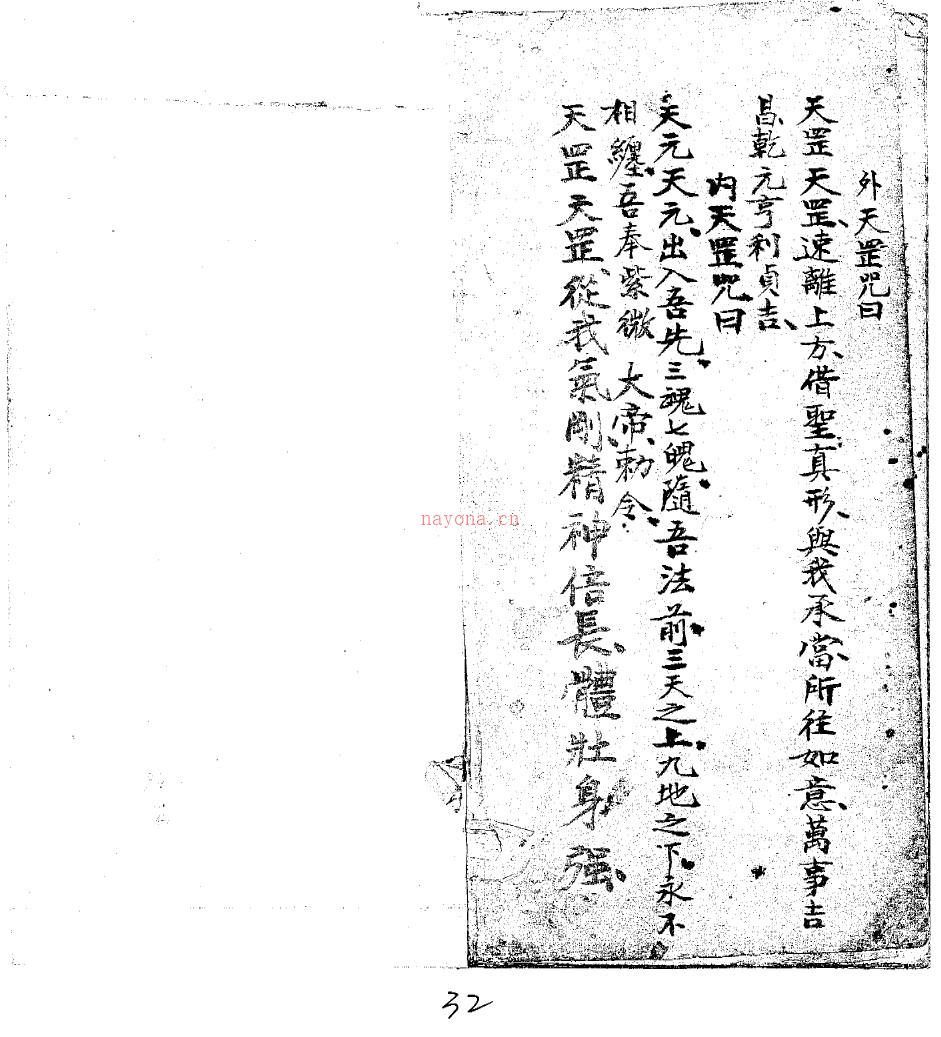 外天罡咒曰
天罡天罡、速離上方、借聖真形、與我承當、所往如意、萬事吉
昌、乾元亨利貞吉、
内天罡咒曰
天元天元、出入吾先、三魂七魄、隨吾法前、三天之上、九地之下、永不
相纏、吾奉紫微 大帝、勅令、
天罡天罡從我氣剛精神倍長、體壯身强、
nayona.cn
32